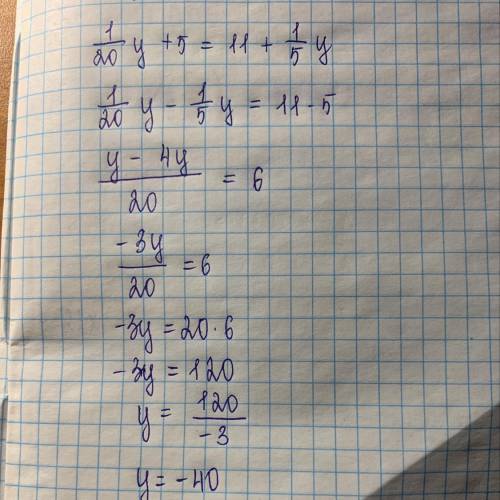 1/20 y + 5 = 11 + 1/5 y
1/20 y - 1/5 y = 11 - 5
(y - 4y)/20 = 6
-3y/20 = 6
-3y = 20 · 6
-3y = 120
y = 120/-3
y = -40